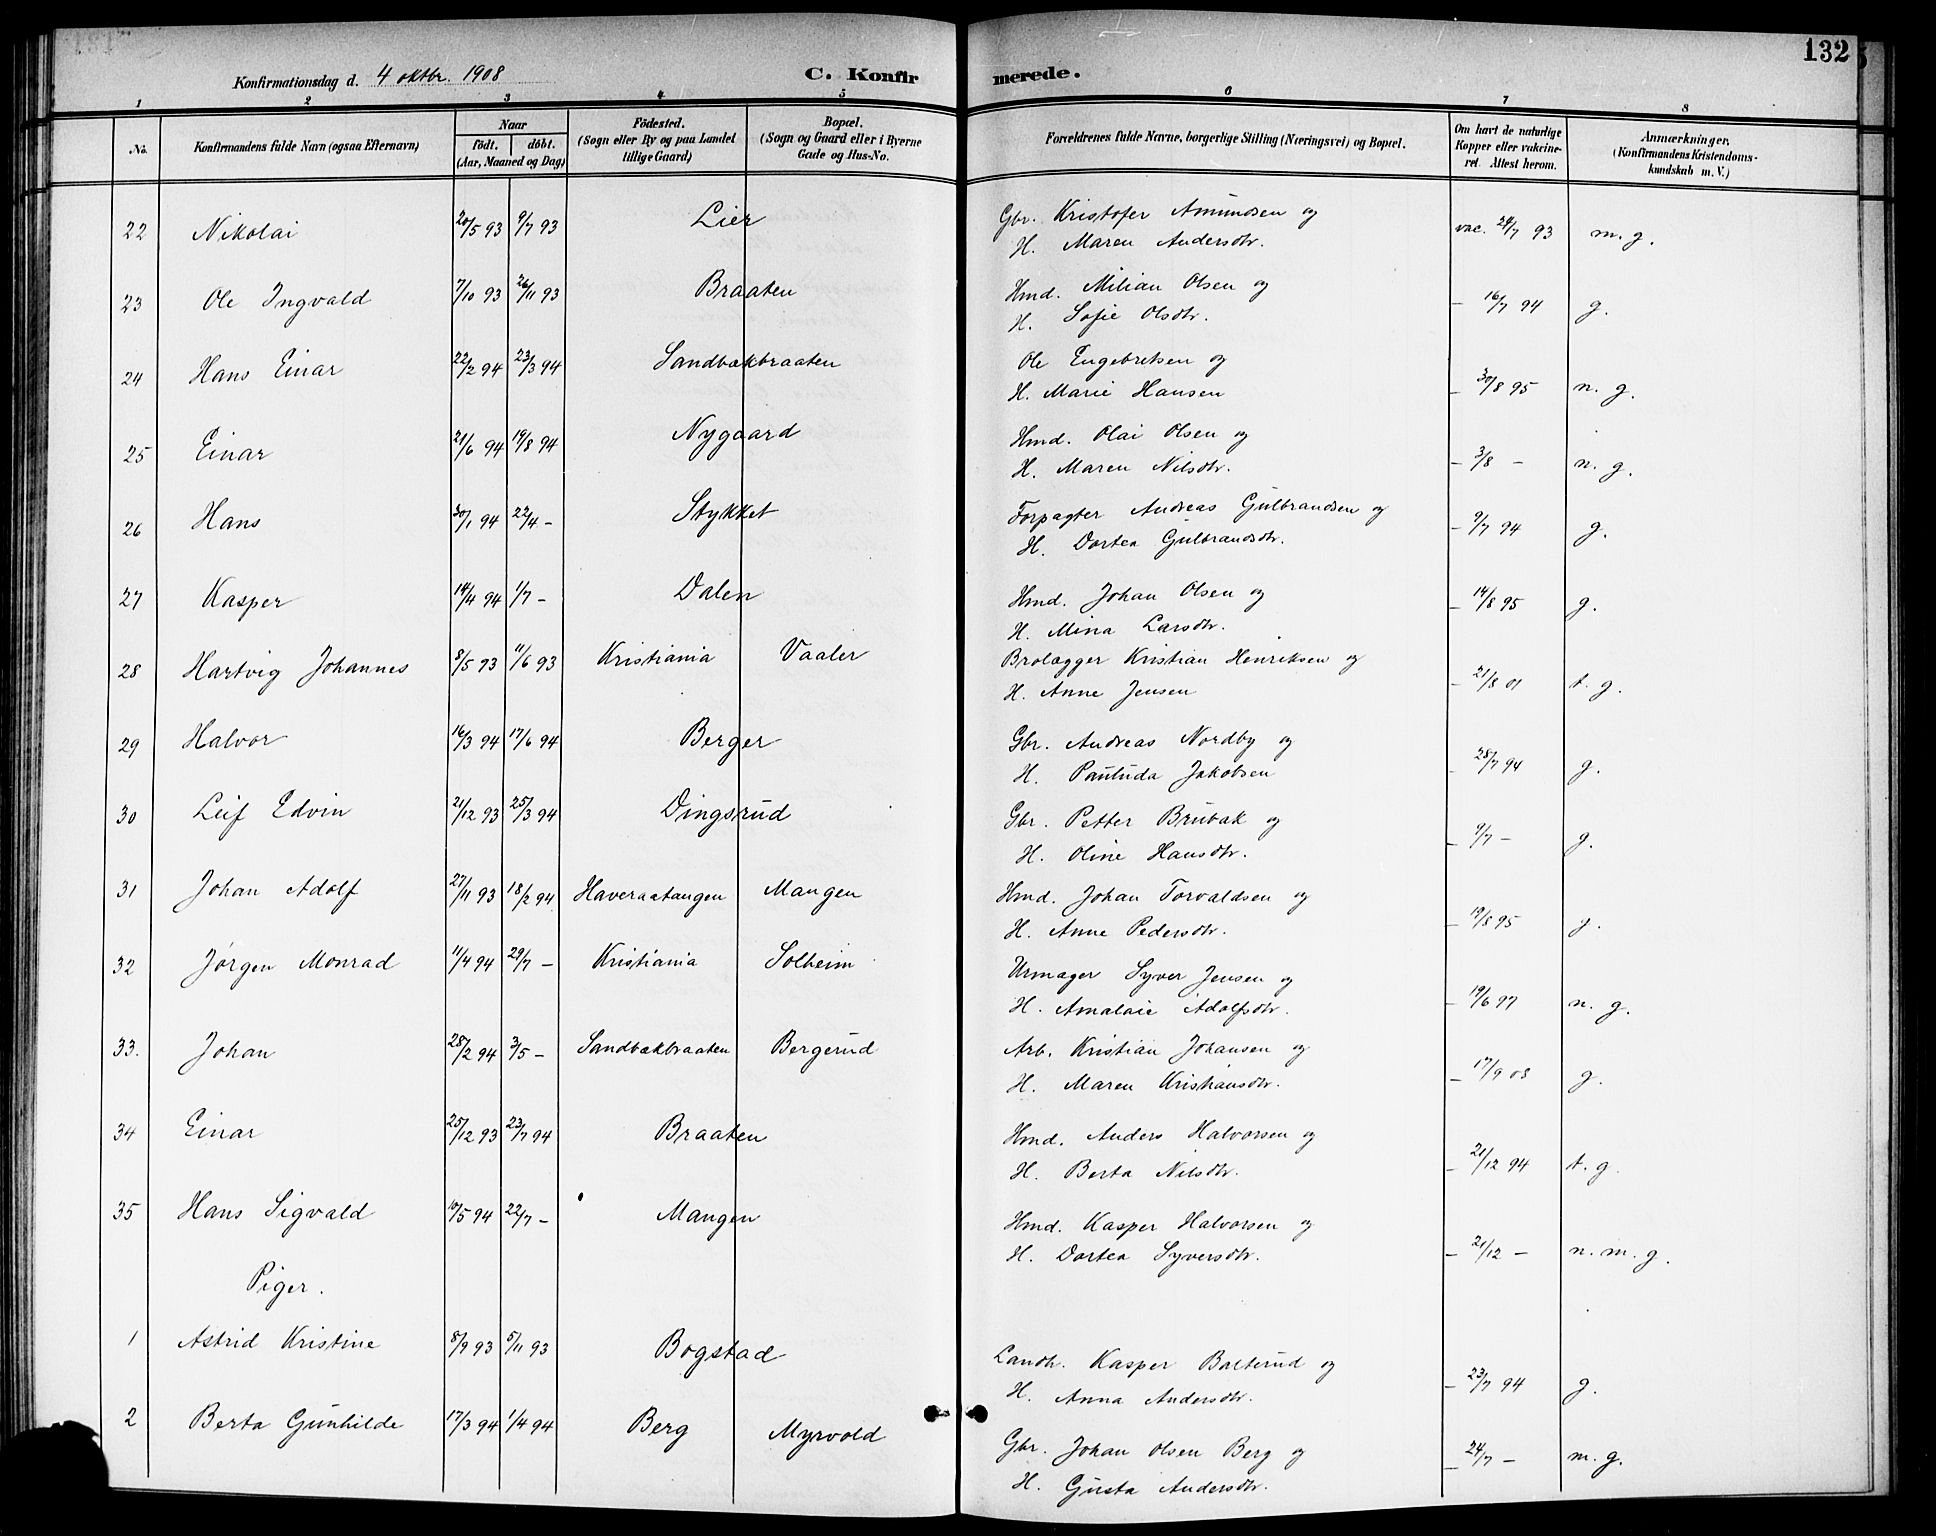 132
Konfirmationsdag d. 4 oktbr. 1908
C. Konfirmerede.
1 2 3 4 5 6 7 8
No.
Konfirmandens fulde Navn (ogsaa Efternavn)
Naar
födt. döbt.
(Aar, Maaned og Dag)
Födested.
(Sogn eller By og paa Landet tillige Gaard)
Bopæl.
(Sogn og Gaard eller i Byerne Gade og Hus-No.
Forældrenes fulde Navne, borgerlige Stilling (Næringsvei) og Bopæl.
Om havt de naturlige Kopper eller vakcineret. Attest herom.
Anmærkninger.
(Konfirmandens Kristendomskundskab m. V.)
22 Nikolai 20/5 93 9/7 93 Lier Gbr. Kristofer Amundsen og vac. 24/7 93 m. g.
H. Maren Andersdtr.
23 Ole Ingvald 7/10 93 26/11 93 Braaten Hmd. Milian Olsen og – 16/7 94 g.
H. Sofie Olsdtr.
24 Hans Einar 22/2 94 23/3 94 Sandbækbraaten Ole Engebretsen og – 30/8 95 n. g.
H. Marie Hansen
25 Einar 21/6 94 19/8 94 Nygaard Hmd. Olai Olsen og – 3/8 – n. g.
H. Maren Nilsdtr.
26 Hans 30/1 94 22/4 – Stykket Forpagter Andreas Gulbrandsen og – 9/7 94 g.
H. Dortea Gulbrandsdtr.
27 Kasper 14/4 94 1/7 – Dalen Hmd. Johan Olsen og – 14/8 95 g.
H. Mina Larsdtr.
28 Hartvig Johannes 8/5 93 11/6 93 Kristiania Vaaler Brolægger Kristian Henriksen og – 21/8 01 t. g.
H. Anne Jensen
29 Halvor 16/3 94 17/6 94 Berger Gbr. Andreas Nordby og – 28/7 94 g.
H. Pauluda Jakobsen
30 Leif Edvin 21/12 93 25/3 94 Dingsrud Gbr. Petter Brubak og – 9/7 – g.
H. Oline Hansdtr.
31 Johan Adolf 27/11 93 18/2 94 Haveraatangen Mangen Hmd. Johan Torvaldsen og – 19/8 95 g.
H. Anne Pedersdtr.
32 Jørgen Monrad 11/4 94 29/7 – Kristiania Solheim Urmager Syver Jensen og – 19/6 97 n. g.
H. Amalaie Adolfsdtr.
33. Johan 28/2 94 3/5 – Sandbækbraaten Bergerud Arb. Kristian Johansen og – 17/9 08 g.
H. Maren Kristiansdtr.
34 Einar 25/12 93 23/7 94 Braaten Hmd. Anders Halvorsen og – 21/12 94 t. g.
H. Berta Nilsdtr.
35 Hans Sigvald 10/5 94 22/7 – Mangen Hmd. Kasper Halvorsen og – 21/12 – n. m. g.
H. Dortea Syversdtr.
Piger.
1 Astrid Kristine 8/9 93 5/11 93 Bogstad Landh. Kasper Balterud og – 23/7 94 g.
H. Anna Andersdtr.
2 Berta Gunhilde 17/3 94 1/4 94 Berg Myrvold Gbr. Johan Olsen Berg og – 24/7 – m. g.
H. Gusta Andersdtr.